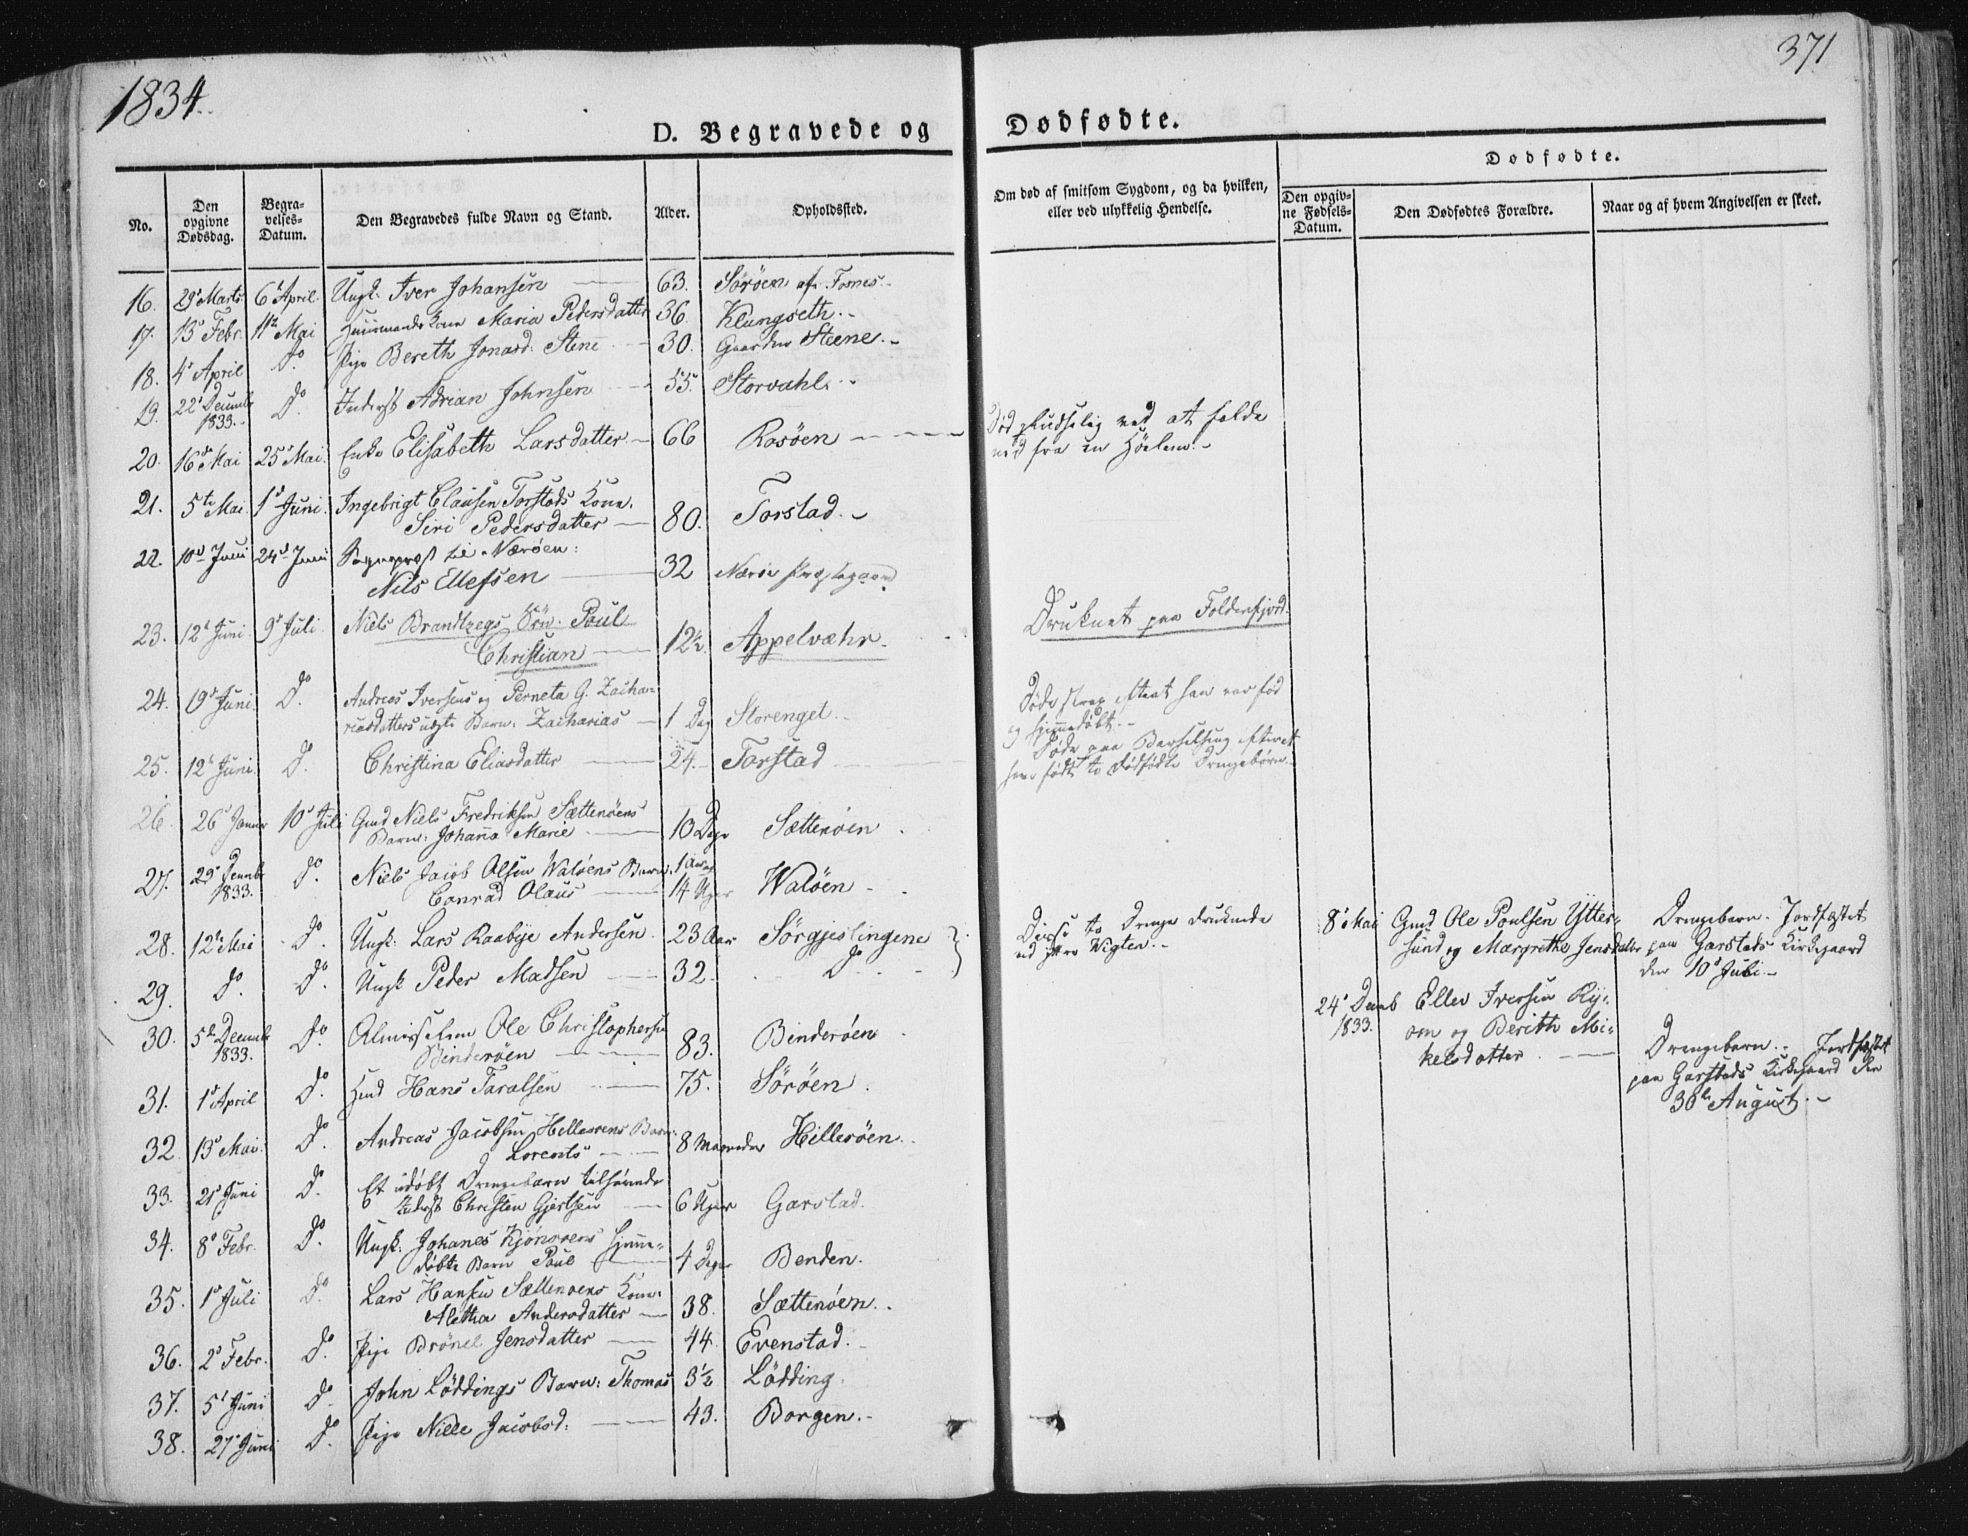 1834.
371
D. Begravede og Dødfødte.
No.
Den opgivne Dødsdag.
Begravelses-Datum.
Den Begravedes fulde Navn og Stand.
Alder.
Opholdssted.
Om død af smitsom Sygdom, og da hvilken, eller ved ulykkelig Hendelse.
Dødfødte.
Den opgivne Fødsels-Datum.
Den Dødfødtes Forældre.
Naar og af hvem Angivelsen er skeet.
16. 29' Marts 6' April. Ungk: Iver Johansen 63. Söröen
17. 13' Febr. 11te Mai Huusmands Kone Maria Pedersdatter 36. Klungseth.
18. 4' April do. Pige Bereth Jonasd: Stene 30. Gaarden Steene.
19. 22' Decembr 1833. do. Inderst Adrian Johnsen 55. Storvahl.
20. 16de Mai 25' Mai. Enke Elisabeth Larsdatter 66 Rosöen Död pludselig ved at falde
ned fra en Höelem.
21. 5te Mai 1' Juni. Ingebrigt Clausen Torstads Kone.
Siri Pedersdatter 80. Torstad.
22. 10' Juni 24' Juni Sognepræst til Næröen:
Nils Ellefsen 32 Närö Præstegaard
23. 12' Juni 9' Juli. Niels Brandtzegs Sön: Paul
Christian 12½ Appelvæhr. Druknet paa Foldenfjord.
24. 19' Juni. do. Andreas Iversens og Perneta G. Zacha-
riasdatters uægte Barn: Zacharias 1 Dag Storenget. Döde strax efterat han var föd
og hjemmedöbt.
25. 12' Juni. do. Christina Eliasdatter 24. Torstad Döde paa Barselseng efterat
have födt to dödfödte Drengebörn.
26. 26' Januar 10' Juli Gmd Niels Fredriksen Sættenöens
Barn: Johanna Marie 10 Dage Sættenöen
27. 29' Decembr 1833. do. Niels Jacob Olsen Walöens Barn.
Conrad Olaus 1 Aar 14 Uger Walöen
28. 12' Mai do. Ungk: Lars Raabye Andersen 23 Aar Sörgjeslingene Disse to Drenge druknede
ud for Vigten.
29. do. do. Ungk Peder Madsen 32. do
30. 5te Decembr 1833. do. Almisselem Ole Christophersen
Binderöen 83. Binderöen
31. 1' April do. Hmd Hans Taralsen 75. Söröen.
32. 13' Mai. do. Andreas Jacobsen Hilleröens Barn:
Lorents 8 Maaneder Hilleröen.
33. 21' Juni do. Et udöbt Drengebarn tilhörende
Inderst Christen Gjertsen 6 Uger Garstad.
34. 8' Febr. do. Ungk: Johanes hjemme-
döbte Barn Paul 4 Dage Benden.
35. 1' Juli do. Lars Hansen Sættenöens Kone
Aletha Andersdatter 38. Sættenöen.
36. 2' Febr. do. Pige Brönel Jensdatter 44. Evenstad.
37. 5' Juni do. John Löddings Barn: Thomas 3½ Lödding.
38. 27' Juni do. Pige Nille Jacobsd: 43. Borgen.
8' Mai Gmd Ole Poulsen Ytter-
sund og Margrethe Jensdatter
Drengebarn. Jordfæstet
paa Garstads Kirkegaard
den 10' Juli.
24' Decemb 1833. Ellev Iversen Ry-
om og Berith Mi-
kelsdatter
Drengebarn. Jordfæstet
paa Garstads Kirkegaard den
30te August.